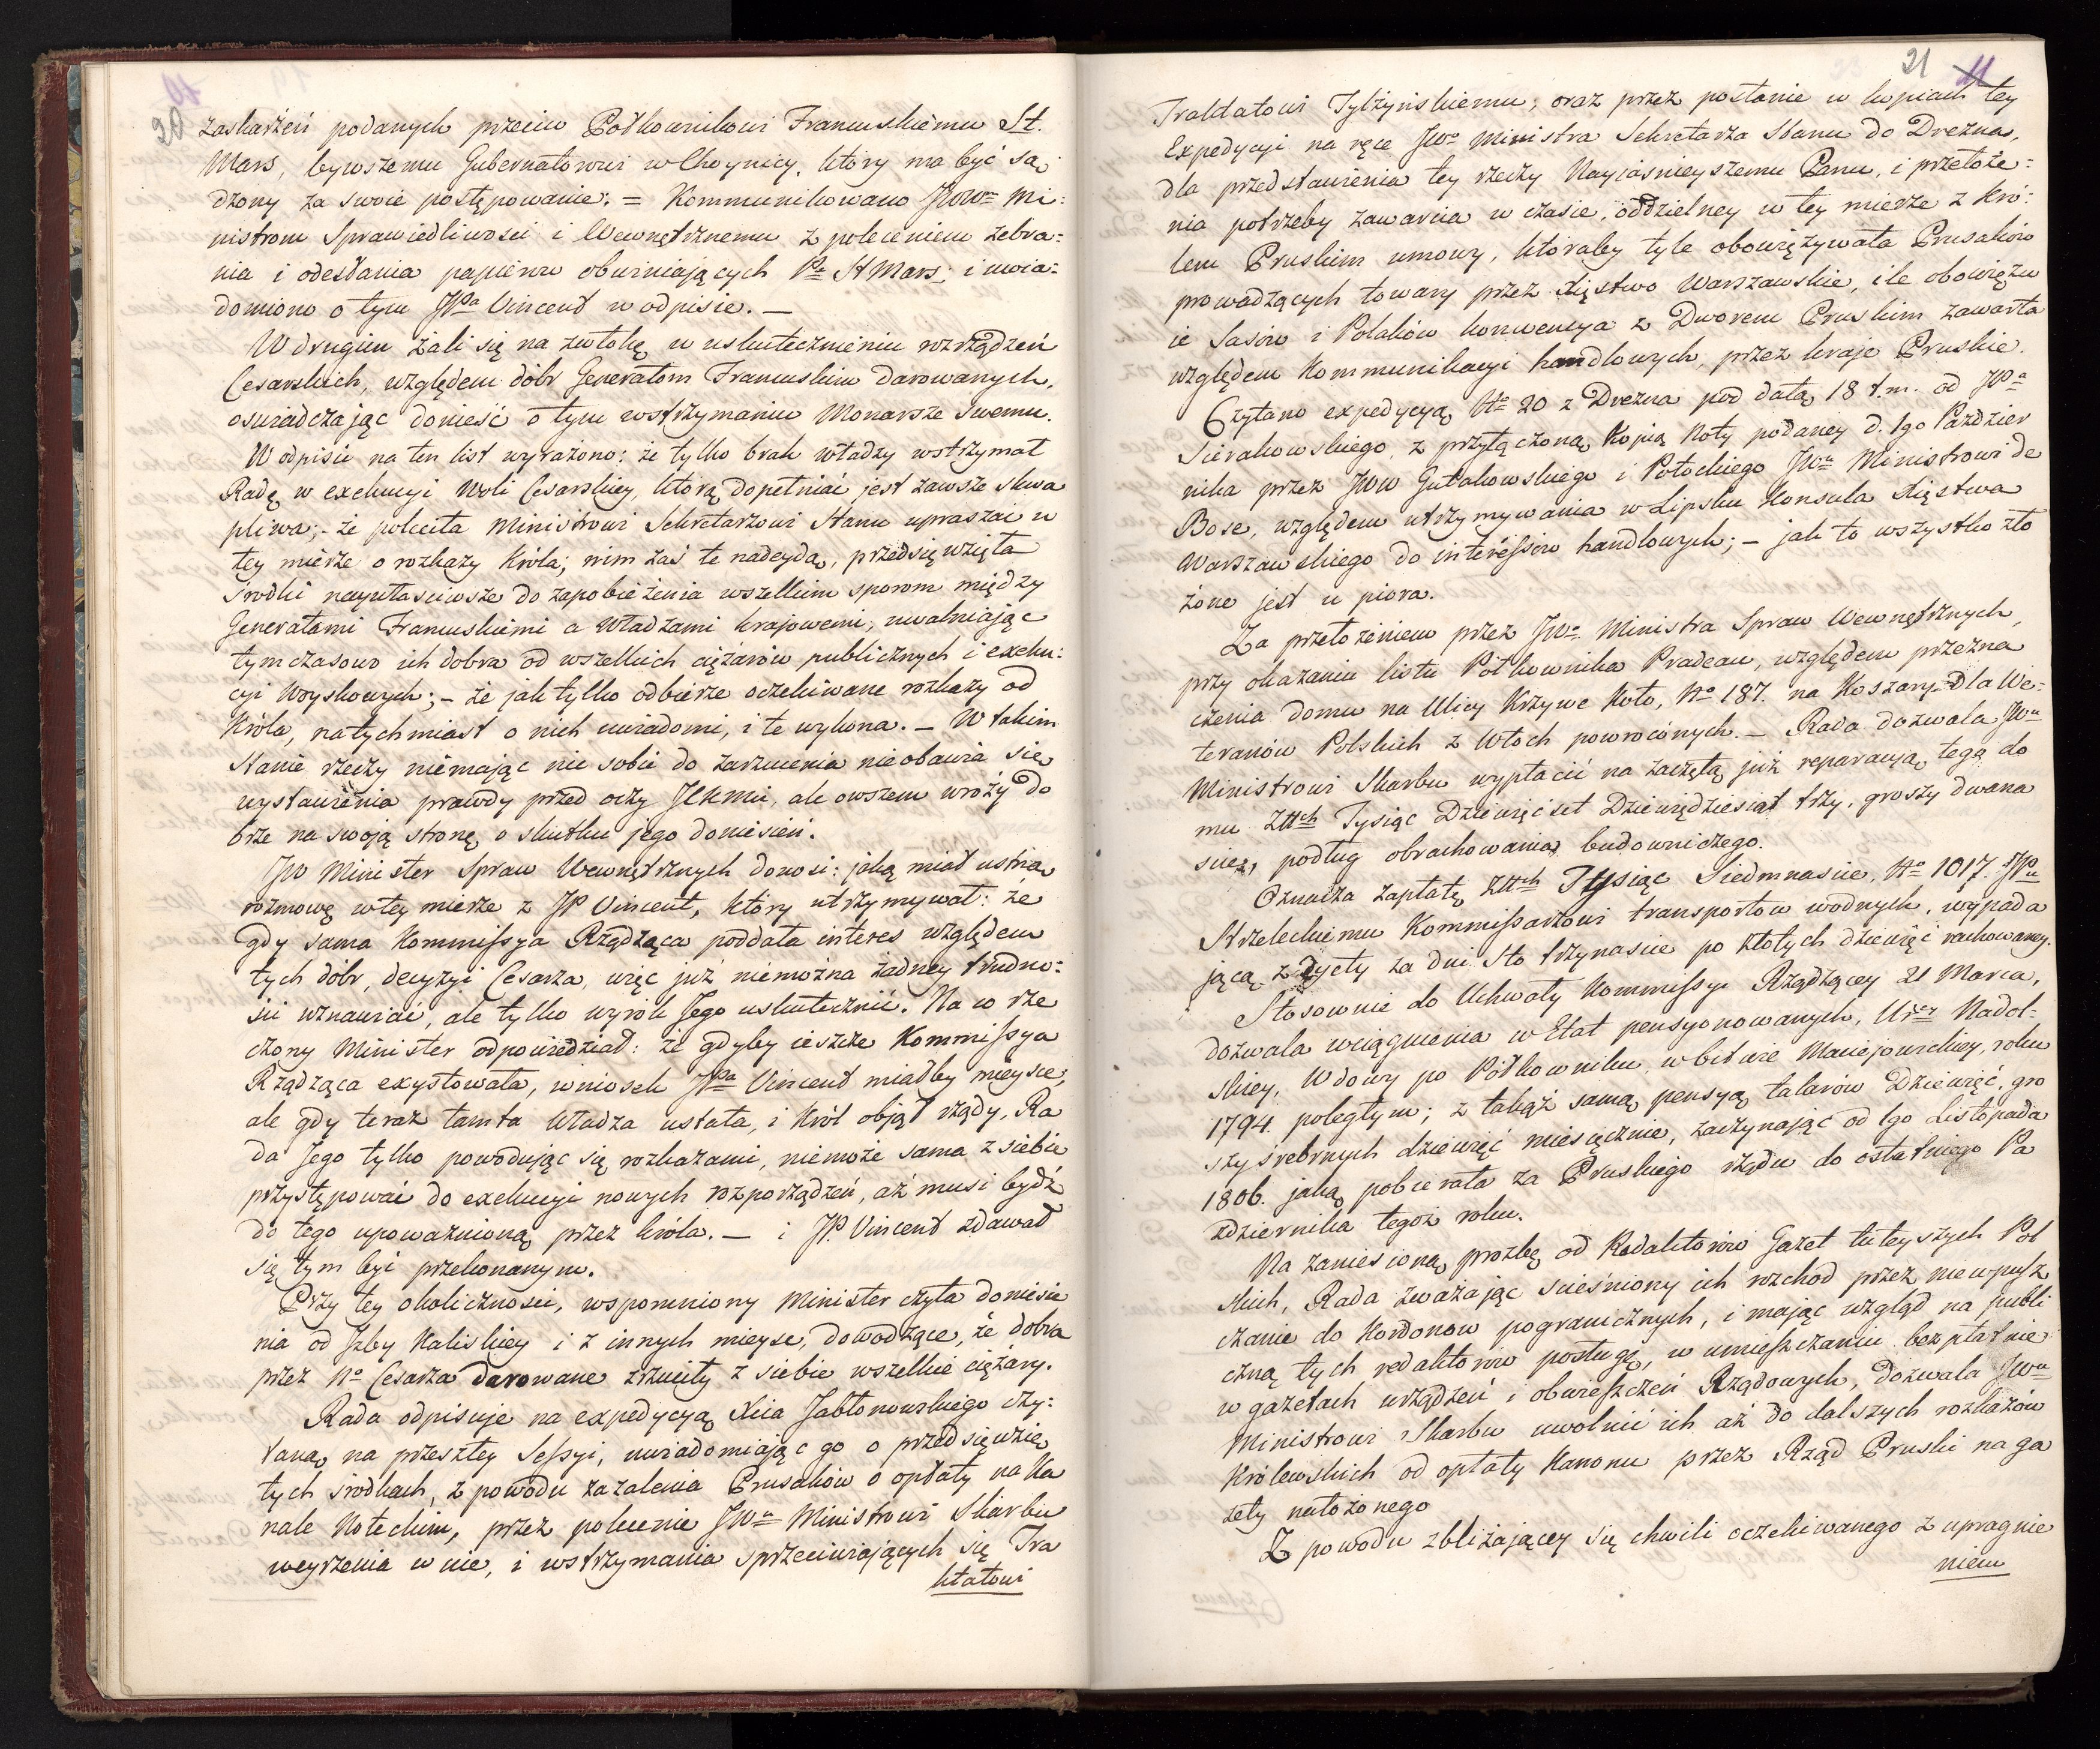 20
zaskarżeń podanych przeciw Połkownikowi Francuskiemu St.
Mars, bywszemu Gubernatorowi w Choynicy, który ma być są
dzony za swoie postępowanie. = Kommunikowano JWW= Mi:
nistrom Sprawiedliwości i Wewnętrznemu z poleceniem zebra:
nia i odesłania papierów obwiniających Pa St Mars; i uwia:
domiono o tym JPa Vincent w odpisie. —
W drugim żali się na zwłokę w uskutecznieniu rozrządzeń
Cesarskich, względem dóbr Generałom Francuskim darowanych,
oswiadczając donieść o tym wstrzymaniu Monarsze swemu.
W odpisie na ten list wyrażono: że tylko brak władzy wstrzymał
Radę w exekucyi Woli Cesarskiey, którą dopełniać jest zawsze skwa
pliwa; - że poleciła Ministrowi Sekretarzowi Stanu upraszać w
tey mierze o rozkazy Króla; nim zaś te nadeydą, przedsięwzięła
środki naywłaściwsze do zapobieżenia wszelkim sporom między
Generałami Francuskiemi a Władzami krajowemi, uwalniając
tymczasowo ich dobra od wszelkich ciężarów publicznych i exeku:
cyi Woyskowych; - że jak tylko odbierze oczekiwane rozkazy od
Króla, natychmiast o nich uwiadomi, i te wykona. — W takim
stanie rzeczy niemając nic sobie do zarzucenia nieobawia się
wystawienia prawdy przed oczy JCKMci, ale owszem wróży do
brze na swoją stronę o skutku jego doniesień.
JW Minister Spraw Wewnętrznych donosi: jaką miał ustną
rozmowę w tey mierze z JP Vincent, który utrzymywał: że
gdy sama Kommissya Rządząca poddała interes względem
tych dóbr, decyzyi Cesarza, więc już niemożna żadney trudno:
ści wznawiać, ale tylko wyrok Jego uskutecznić. Na co rze
czony Minister odpowiedział: że gdyby ieszcze Kommissya
Rządząca exystowała, wniosek JPa Vincent miałby mieysce;
ale gdy teraz tamta Władza ustała, i Król objął rządy, Ra
da Jego tylko powodując się rozkazami, niemoże sama z siebie
przystępować do exekucyi nowych rozporządzeń, aż musi bydź
do tego upoważnioną przez Króla. — i JP. Vincent zdawał
się tym być przekonanym.
Przy tey okoliczności, wspomniony Minister czyta doniesie
nia od Izby Kaliskiey i z innych mieysc, dowodzące, że dobra
przez No Cesarza darowane zrzuciły z siebie wszelkie ciężary.
Rada odpisuje na expedycyą Xcia Jabłonowskiego czy:
taną na przeszłey Sessyi, uwiadomiając go o przedsięwzię
tych środkach, z powodu zażalenia Prusaków o opłaty na Ka
nale Noteckim, przez polecenie JWu Ministrowi Skarbu
weyrzenia w nie, i wstrzymania sprzeciwiających się Tra
ktatowi
21 11
Traktatowi Tylżyńskiemu; oraz przez posłanie w kopiach tey
Expedycyi na ręce JWo Ministra Sekretarza Stanu do Drezna,
dla przedstawienia tey rzeczy Nayiaśnieyszemu Panu, i przełoże:
nia potrzeby zawarcia w czasie, oddzielney w tey mierze z Kró:
lem Pruskim umowy, któraby tyle obowięzywała Prusaków
prowadzących towary przez Xięstwo Warszawskie, ile obowięzu
ie Sasów i Polaków konwencya z Dworem Pruskim zawarta
względem Kommunikacyi handlowych, przez kraje Pruskie.
Czytano expedycyą No 20 z Drezna pod datą 18 t.m. od JPa
Sierakowskiego, z przyłączoną Kopią Noty podaney d. 1go Paździer
nika przez JWW Gutakowskiego i Potockiego JWu Ministrowi de
Bose, względem utrzymywania w Lipsku Konsula Xięstwa
Warszawskiego do interessów handlowych; — jak to wszystko zło
żone jest u piora.
Za przełożeniem przez JWo Ministra Spraw Wewnętrznych
przy okazaniu listu Połkownika Pradeau, względem przezna
czenia domu na Ulicy Krzywe Koło, No 187. na Koszary dla We:
teranów Polskich z Włoch powroconych. — Rada dozwala JWu
Ministrowi Skarbu wypłacić na zaczętą już reparacyą tego do
mu Złłch Tysiąc Dziewięćset Dziewiędziesiąt trzy, groszy dwana
ście, podług obrachowania budowniczego.
Oznacza zapłatę złłch Tysiąc Siedmnaście, No 1017. JPu
Strzeleckiemu Kommissarzowi transportow wodnych, wypada
jącą z dyety za dni sto trzynaście po złotych dziewięć rachowaney.
Stosownie do Uchwały Kommissyi Rządzącey 21 Marca,
dozwala wciągnienia w Etat pensyonowanych, Urey Nadol:
skiey, Wdowy po Półkowniku, w bitwie Maciejowickiey, roku
1794. poległym; z takąż samą pensyą talarów Dziewięć, gro
szy srebrnych dziewięć miesięcznie, zaczynając od 1go Listopada
1806. jaką pobierała za Pruskiego rządu do ostatniego Pa
zdziernika tegoż roku.
Na zaniesioną prozbę od Redaktorów Gazet tuteyszych Pol
skich, Rada zważając sciesniony ich rozchod przez niewpusz
czanie do Kordonow pogranicznych, i mając wzgląd na publi
czną tych redaktorów posługę, w umieszczaniu bezpłatnie
w gazetach urządzeń i obwieszczeń Rządowych, dozwala JWu
Ministrowi Skarbu uwolnić ich aż do dalszych rozkazów
Królewskich od opłaty Kanonu przez Rząd Pruski na ga
zety nałożonego
Z powodu zbliżającey się chwili oczekiwanego z upragnie
niem